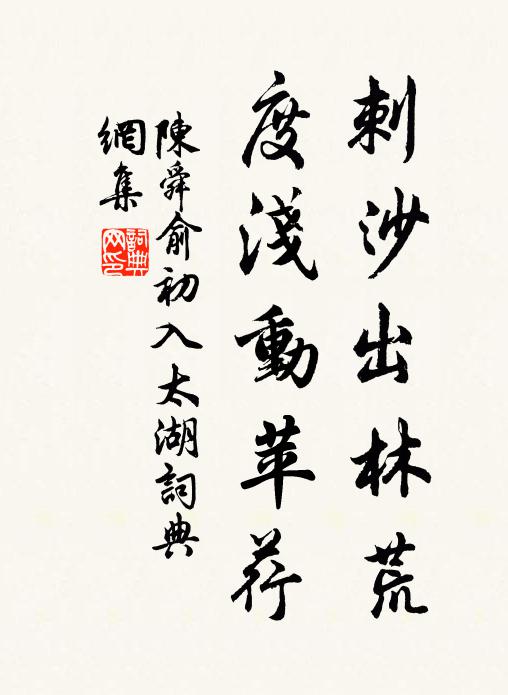 刺沙出林荒
度淺動苹荇
陳舜俞初入太湖詞典
網集
詞典網印